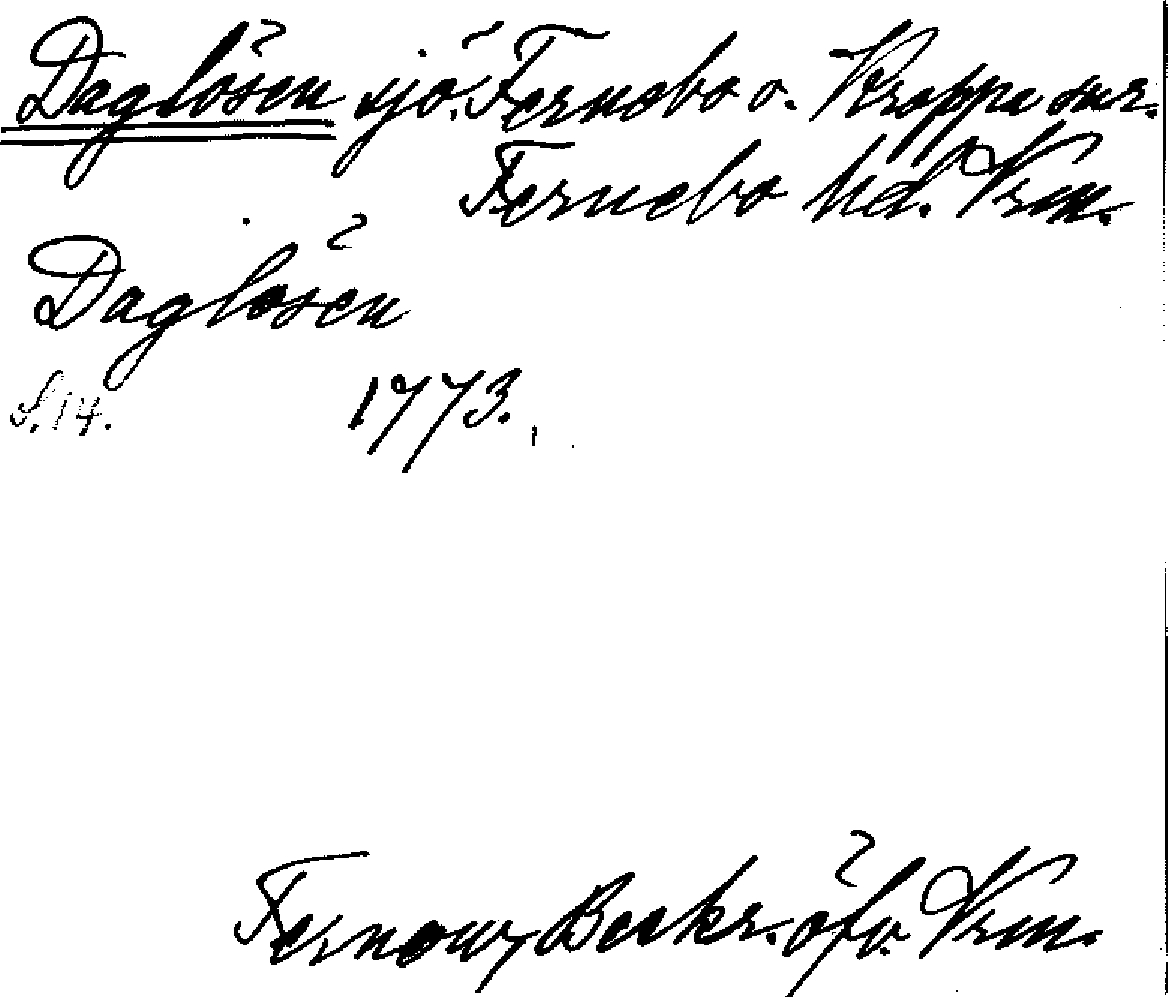 Daglösen sjö. Fernebo o. Kroppa snr.
Fernebo hd. Vrm.
Daglösen
S. 14. 1773.
Fernow, Beskr. öfv. Vrm.